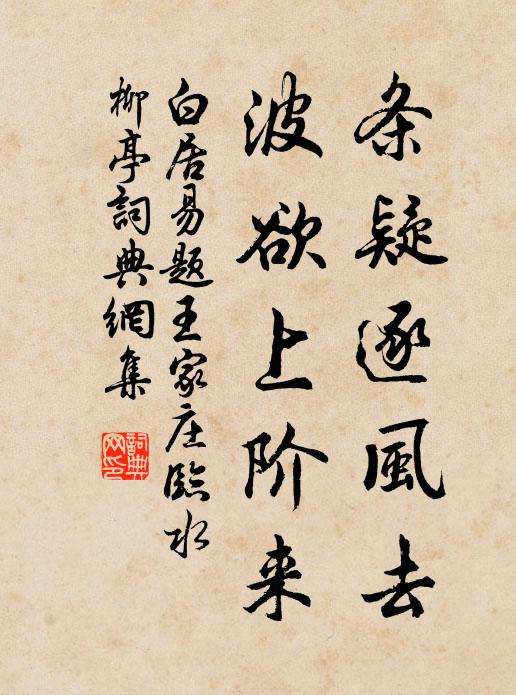 条疑逐風去
波欲上阶来
白居易题王家庄臨水
柳亭詞典網集
詞典网印